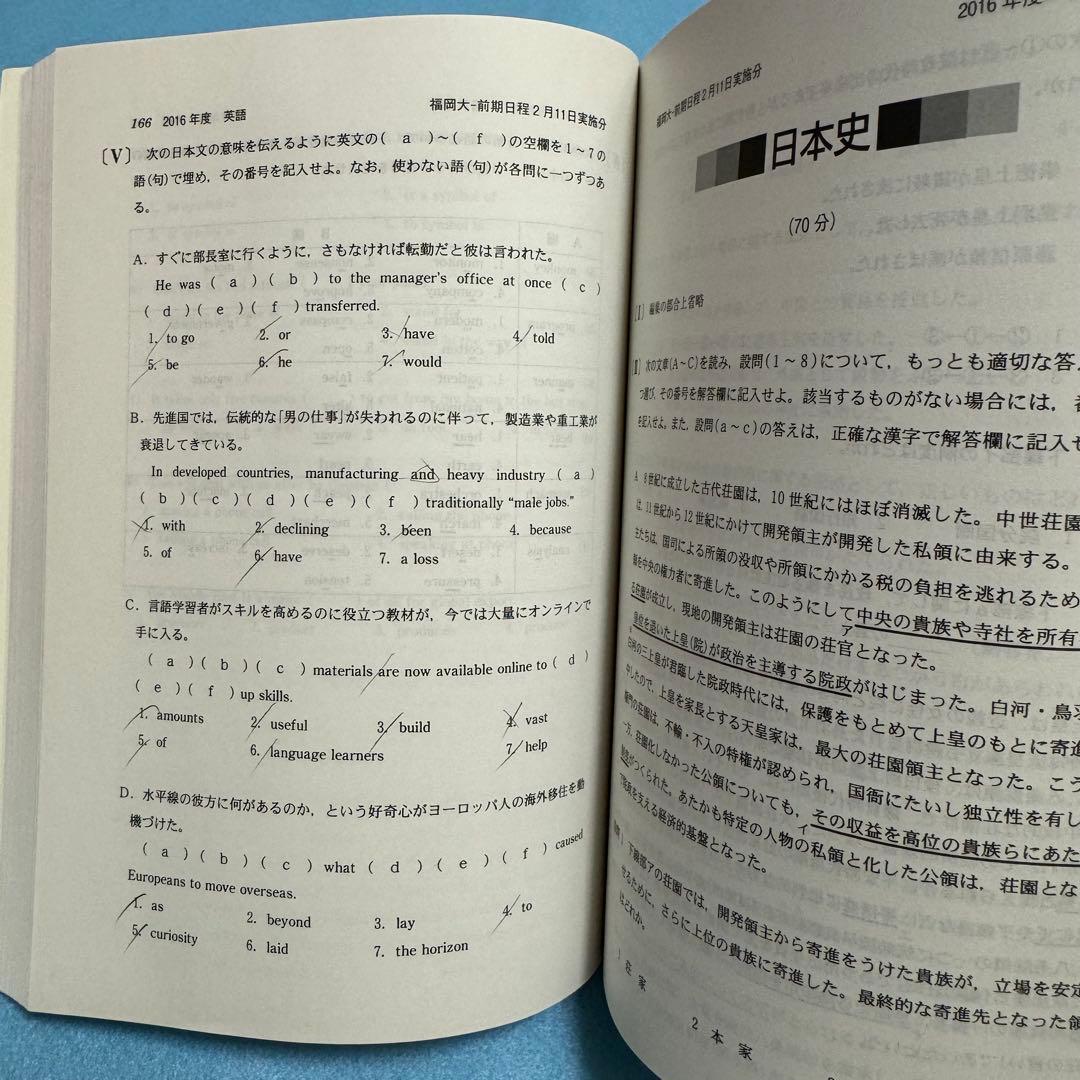 166 2016年度 英語
福岡大-前期日程2月11日実施分
〔V〕 次の日本文の意味を伝えるように英文の( a )～( f )の空欄を1～7の
語(句)で埋め，その番号を記入せよ。なお，使わない語(句)が各問に一つずつあ
る。
A. すぐに部長室に行くように，さもなければ転勤だと彼は言われた。
He was ( a ) ( b ) to the manager's office at once ( c )
( d ) ( e ) ( f ) transferred.
1. to go 2. or 3. have 4. told
5. be 6. he 7. would
B. 先進国では，伝統的な「男の仕事」が失われるのに伴って，製造業や重工業が
衰退してきている。
In developed countries, manufacturing and heavy industry ( a )
( b ) ( c ) ( d ) ( e ) ( f ) traditionally "male jobs."
1. with 2. declining 3. been 4. because
5. of 6. have 7. a loss
C. 言語学習者がスキルを高めるのに役立つ教材が，今では大量にオンラインで
手に入る。
( a ) ( b ) ( c ) materials are now available online to ( d )
( e ) ( f ) up skills.
1. amounts 2. useful 3. build 4. vast
5. of 6. language learners 7. help
D. 水平線の彼方に何があるのか，という好奇心がヨーロッパ人の海外移住を動
機づけた。
( a ) ( b ) ( c ) what ( d ) ( e ) ( f ) caused
Europeans to move overseas.
1. as 2. beyond 3. lay 4. to
5. curiosity 6. laid 7. the horizon
2016年度
福岡大-前期日程2月11日実施分
日本史
(70分)
〔I〕 編集の都合上省略
〔II〕 次の文章(A～C)を読み，設問(1～8)について，もっとも適切な答
つ選び，その番号を解答欄に記入せよ。該当するものがない場合には，
を記入せよ。また，設問(a～c)の答えは，正確な漢字で解答欄に記入せ
A 8世紀に成立した古代荘園は，10世紀にはほぼ消滅した。中世荘園
は，11世紀から12世紀にかけて開発領主が開発した私領に由来する。
主たちは，国司による所領の没収や所領にかかる税の負担を逃れるため
領を中央の権力者に寄進した。このようにして中央の貴族や寺社を所有
る荘園が成立し，現地の開発領主は荘園の荘官となった。
ア
皇位を退いた上皇(院)が政治を主導する院政がはじまった。白河・鳥羽
白河の三上皇が君臨した院政時代には，保護をもとめて上皇のもとに寄進
中したので，上皇を家長とする天皇家は，最大の荘園領主となった。こう
門の荘園は，不輸・不入の特権が認められ，国衙にたいし独立性を有し
一方，荘園化しなかった公領についても，その収益を高位の貴族らにあた
イ
がつくられた。あたかも特定の人物の私領と化した公領は，荘園とな
て院政を支える経済的基盤となった。
下線部アの荘園では，開発領主から寄進をうけた貴族が，立場を安定
せるために，さらに上位の貴族に寄進した。最終的な寄進先となった領
はどれか。
1 荘 家
2 本 家